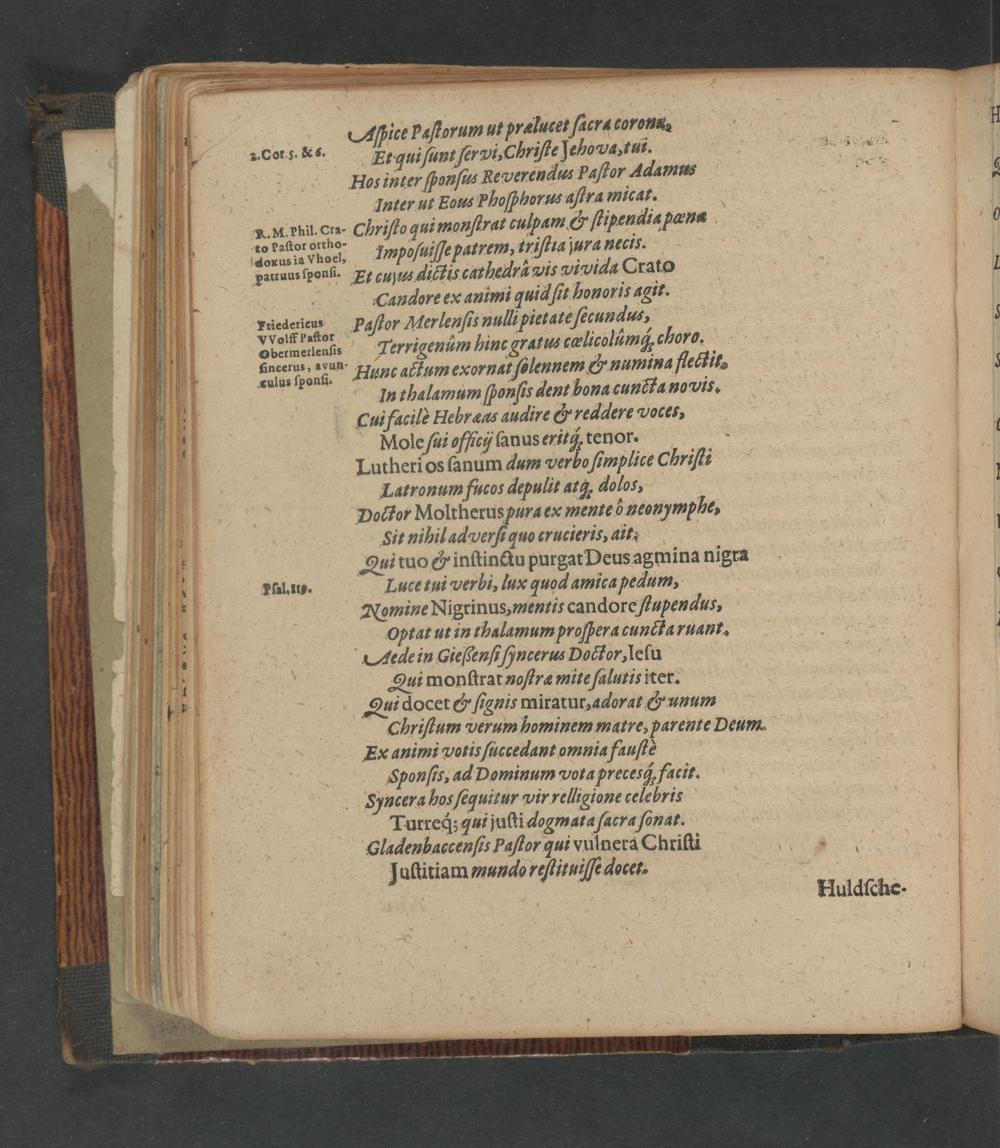 Aſpice Paſtorum ut prælucet ſacra corona,
2. Cor. 5. & 6.
Et qui ſunt ſervi, Chriſte Jehova, tui.
Hos inter ſponſus Reverendus Paſtor Adamus
Inter ut Eous Phoſphorus aſtra micat.
R. M. Phil. Cra-
to Paſtor ortho-
doxus in Vhoel,
patruus ſponſi.
Chriſto qui monſtrat culpam & ſtipendia pœnæ
Impoſuiſſe patrem, triſtia jura necis.
Et cujus dictis cathedrâ vis vivida Crato
Candore ex animi quid ſit honoris agit.
Friedericus
VVolff Paſtor
Obermerlenſis
ſincerus, avun-
culus ſponſi.
Paſtor Merlenſis nulli pietate ſecundus,
Terrigenûm hinc gratus cœlicolûmq́; choro.
Hunc actum exornat ſolennem & numina flectit,
In thalamum ſponſis dent bona cuncta novis.
Cui facilè Hebræas audire & reddere voces,
Mole ſui officij ſanus eritq́; tenor.
Lutheri os ſanum dum verbo ſimplice Chriſti
Latronum fucos depulit atq; dolos,
Doctor Moltherus pura ex mente ô neonymphe,
Sit nihil adverſi quo crucieris, ait.
Qui tuo & inſtinctu purgat Deus agmina nigra
Pſal. 119.
Luce tui verbi, lux quod amica pedum,
Nomine Nigrinus, mentis candore ſtupendus,
Optat ut in thalamum proſpera cuncta ruant.
Aede in Gießenſi ſyncerus Doctor, Ieſu
Qui monſtrat noſtræ mite ſalutis iter.
Qui docet & ſignis miratur, adorat & unum
Chriſtum verum hominem matre, parente Deum.
Ex animi votis ſuccedant omnia fauſtè
Sponſis, ad Dominum vota precesq́; facit.
Syncera hos ſequitur vir relligione celebris
Turreq́; qui juſti dogmata ſacra ſonat.
Gladenbaccenſis Paſtor qui vulnera Chriſti
Juſtitiam mundo reſtituiſſe docet.
Huldſche-